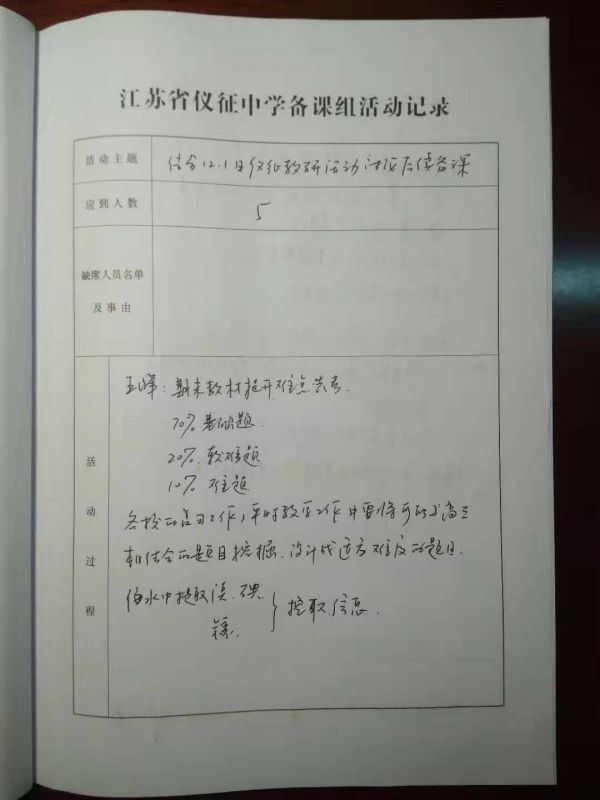 江苏省仪征中学备课组活动记录
活动主题
结合12.1日仪征教研活动讨论后续备课
应到人数
5
缺席人员名单
及事由
活动过程
王峰：期末教材提升难点
70% 基础题.
20%. 较难题
10% 难题
各校的复习工作，平时教学工作中要将可能与高三
相结合的题目挖掘、设计成适当难度的题目.
海水中提取溴、碘
镁.
} 提取信息.